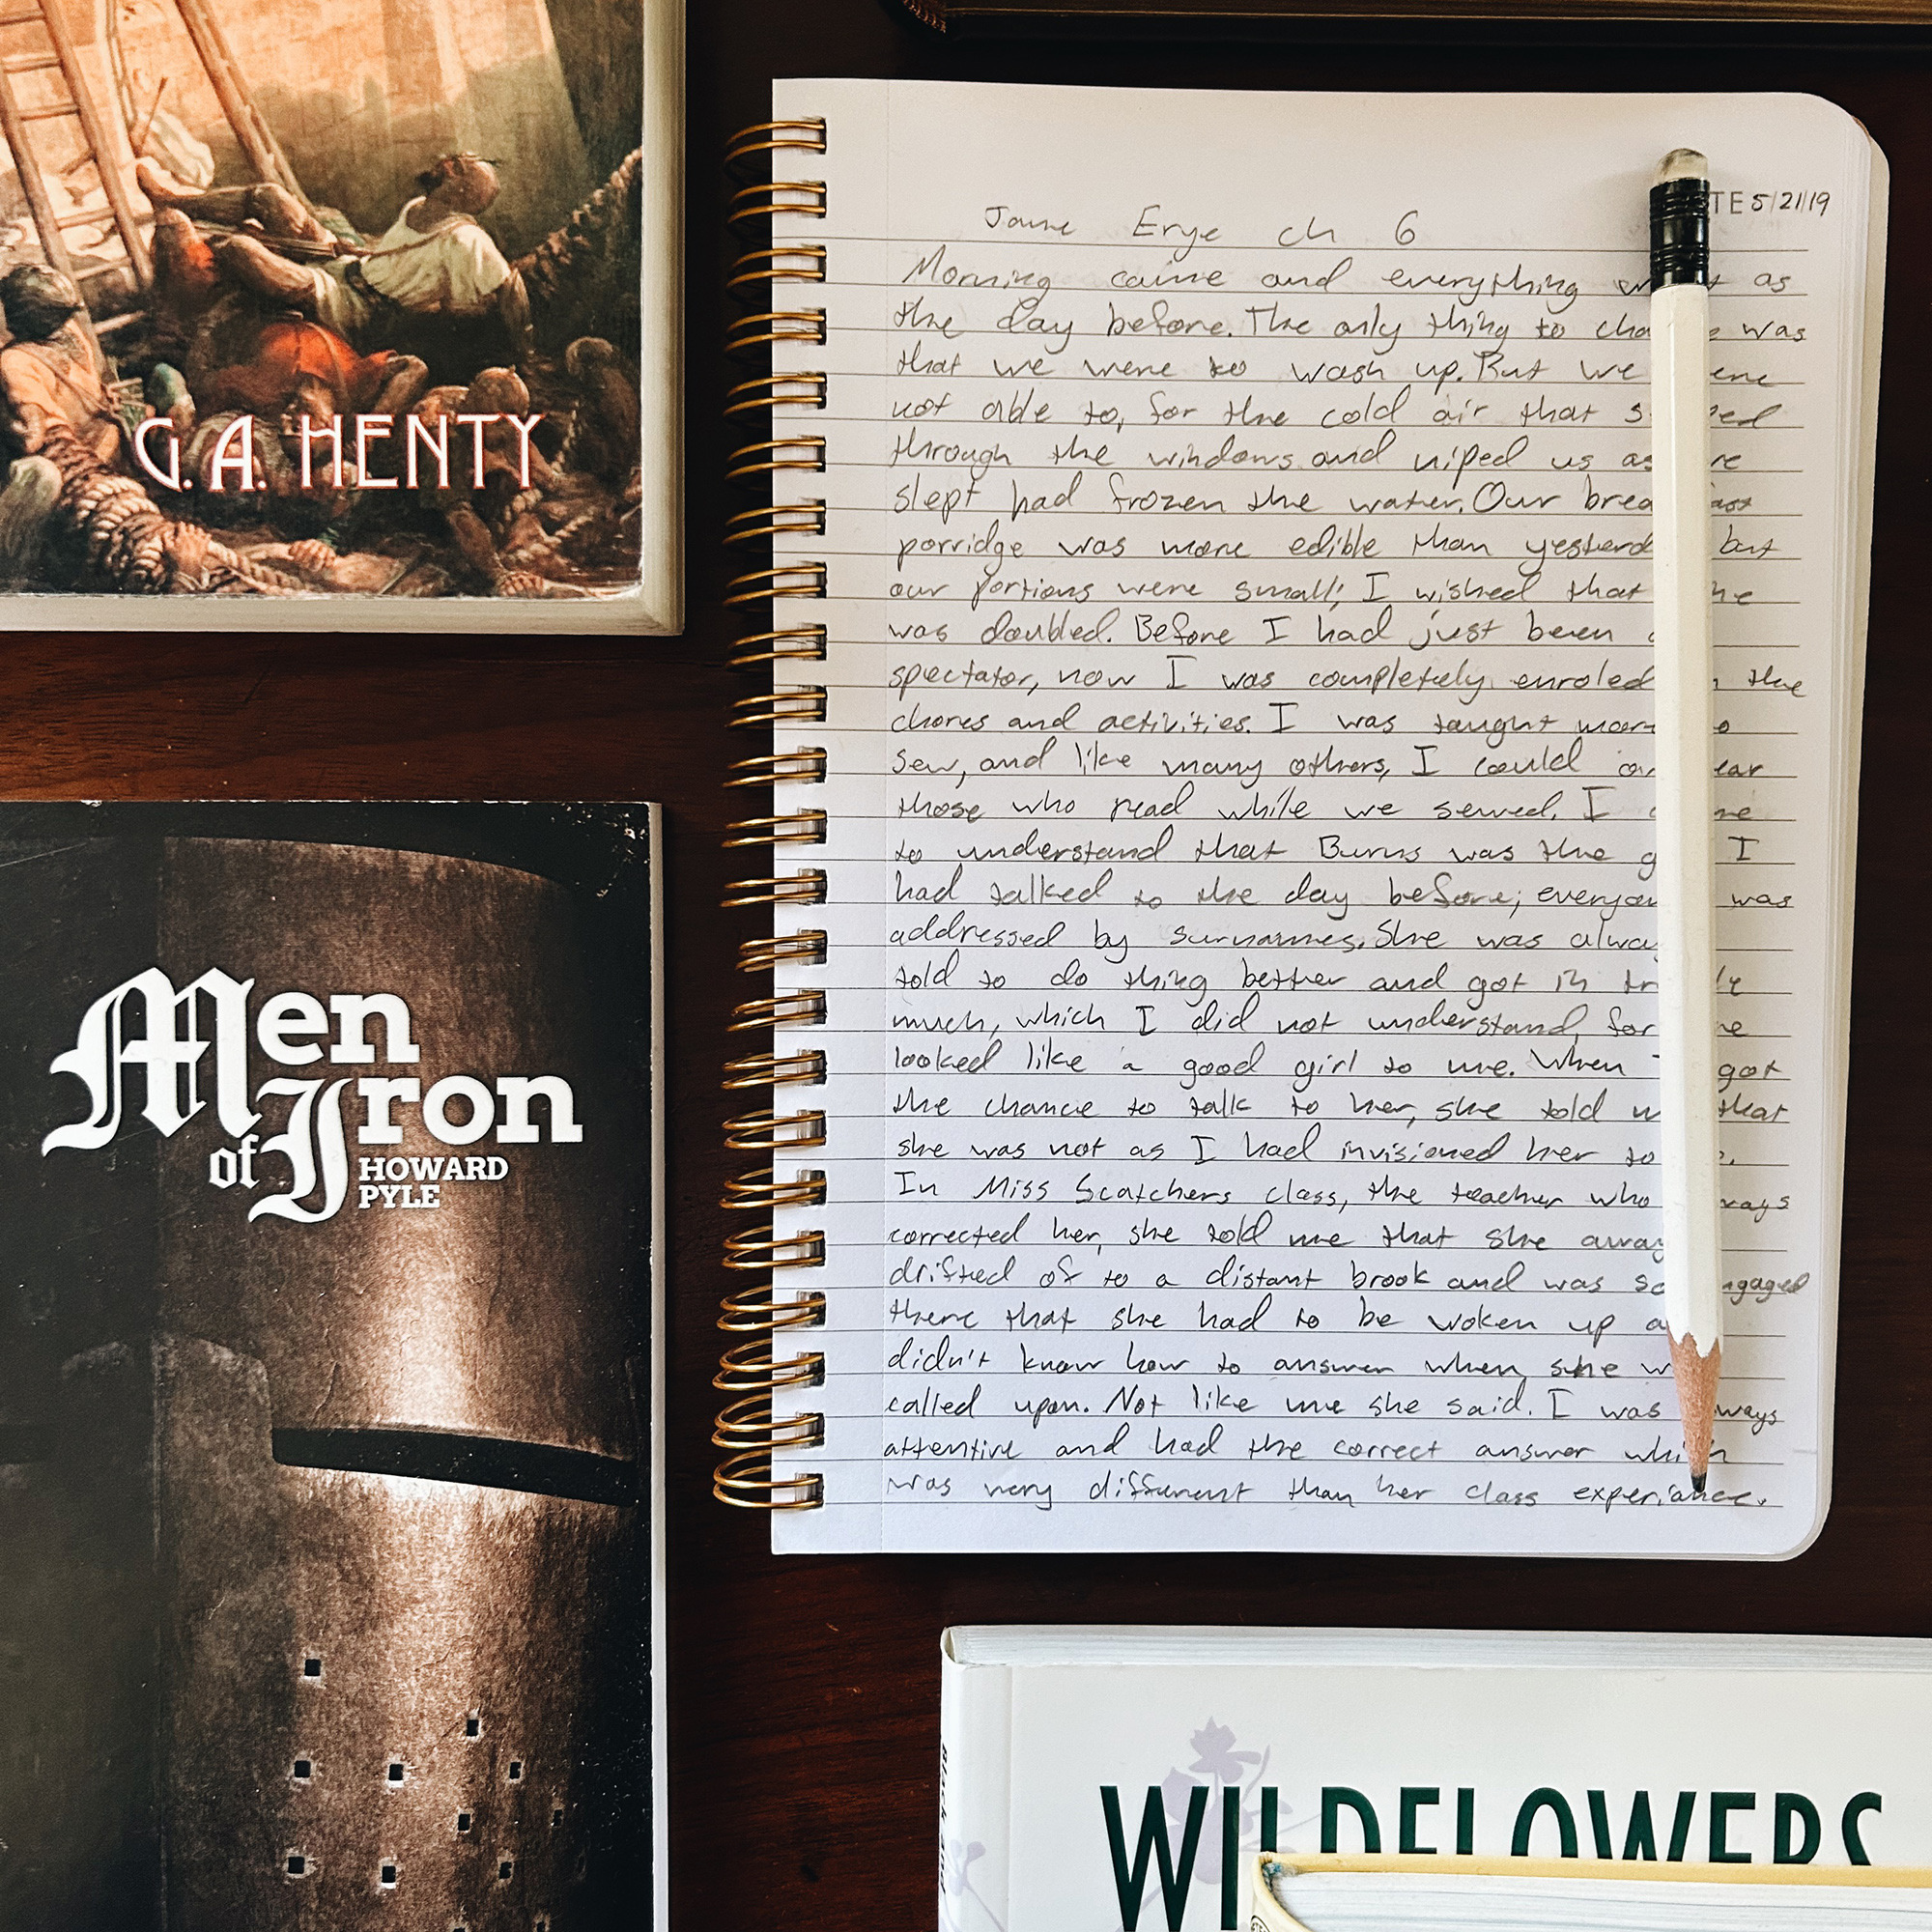 G.A. HENTY
Men
of Iron
HOWARD
PYLE
TE 5/21/19
Jane Erye ch 6
Morning came and everything as
the day before. The only thing to was
that we were to wash up. But we
not able to, for the cold air that
through the windows and niped us as
slept had frozen the water. Our
porridge was more edible than but
our portions were small; I wished that
was doubled. Before I had just been
spectator, now I was completely enroled the
chores and activities. I was taught
sew, and like many others, I could
those who read while we sewed. I
to understand that Burns was the I
had talked to the day before; was
addressed by surnames. She was
told to do thing better and got in
much, which I did not understand, for
looked like a good girl to me. When got
the chance to talk to her, she told that
she was not as I had invisioned her to
In Miss Scatchers class, the teacher who
corrected her, she told me that she
drifted of to a distant brook and was
there that she had to be woken up
didn't know how to answer when she
called upon. Not like me she said. I was
attentive and had the correct answer which
was very different than her class experiance.
WILDFLOWERS